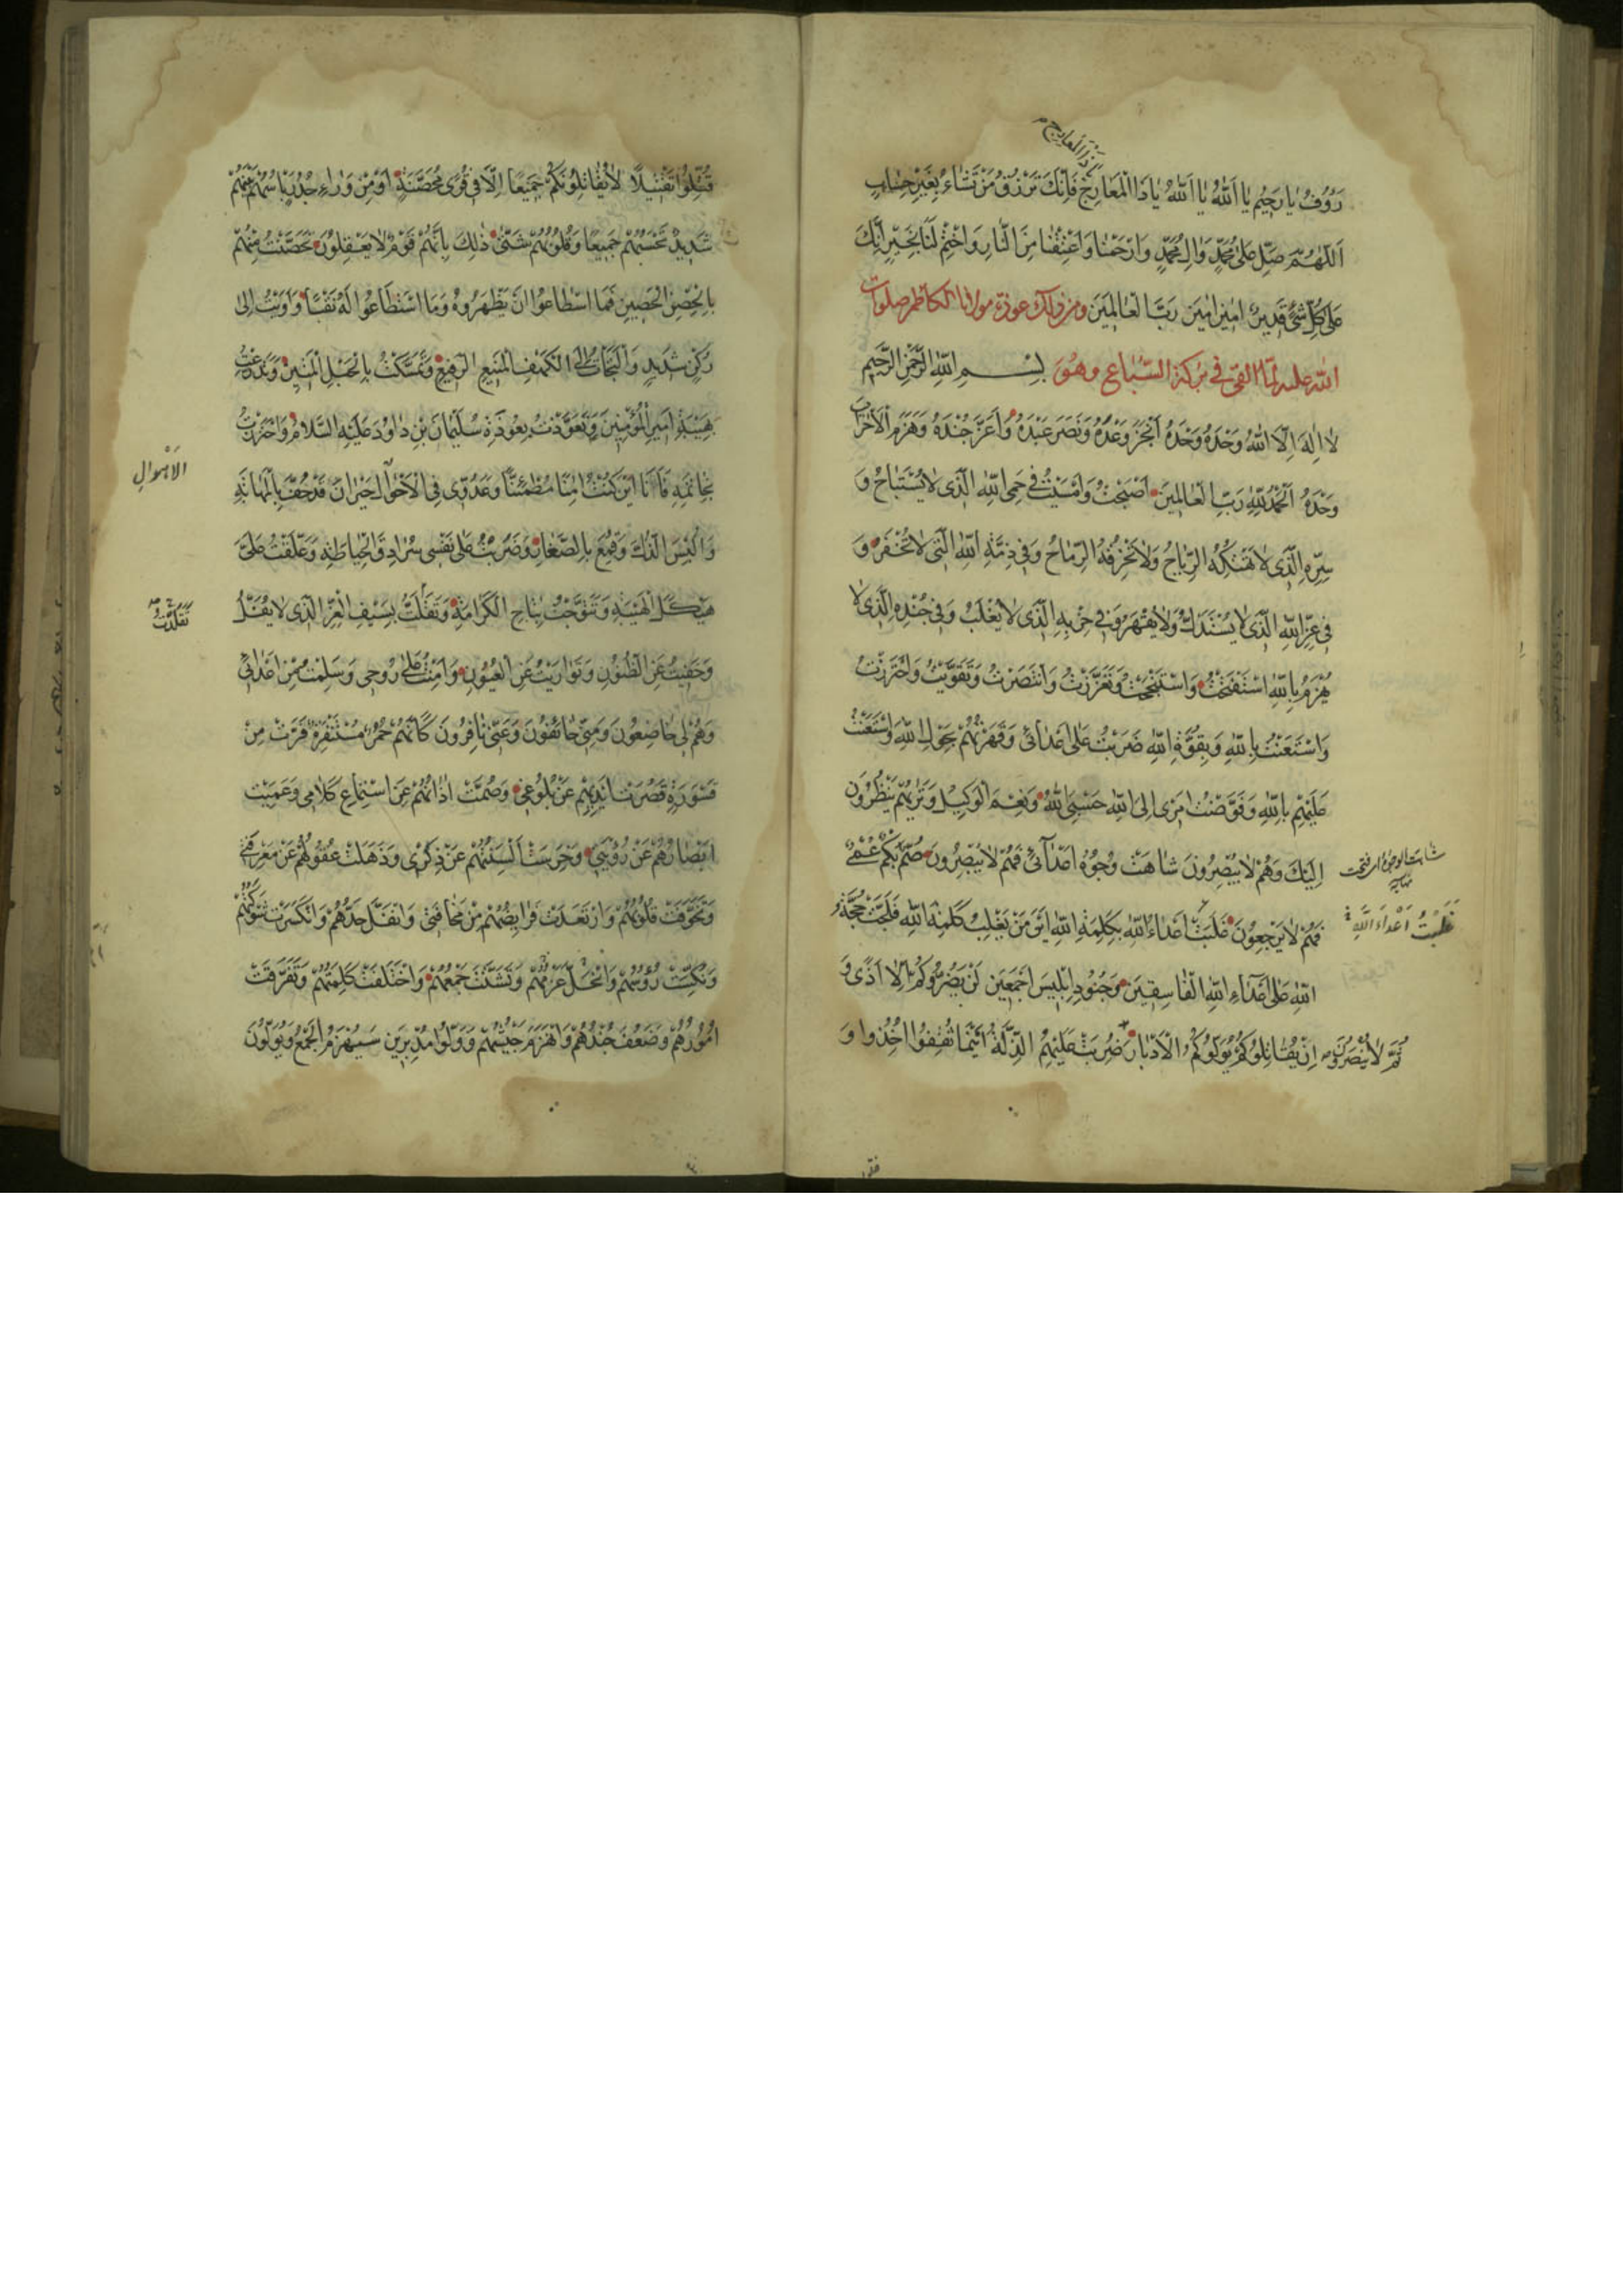 ذَا الْمَعَارِجِ
رَؤُوفُ يَا رَحِيمُ يَا اَللّٰهُ يَا اَللّٰهُ يَا ذَا الْمَعَارِجِ فَاِنَّكَ تَرْزُقُ مَنْ تَشَاءُ بِغَيْرِ حِسَابٍ
اَللّٰهُمَّ صَلِّ عَلٰى مُحَمَّدٍ وَاٰلِ مُحَمَّدٍ وَارْحَمْنَا وَاَعْتِقْنَا مِنَ النَّارِ وَاخْتِمْ لَنَا بِخَيْرٍ اِنَّكَ
عَلٰى كُلِّ شَىْءٍ قَدِيرٌ اٰمِينَ اٰمِينَ رَبَّ الْعَالَمِينَ ومن ذلك عوذة مولانا الكاظم صلوات
الله عليه لما القى فى بركة السباع وهو بِسْمِ اللّٰهِ الرَّحْمٰنِ الرَّحِيمِ
لَا اِلٰهَ اِلَّا اللّٰهُ وَحْدَهُ وَحْدَهُ اَنْجَزَ وَعْدَهُ وَنَصَرَ عَبْدَهُ وَاَعَزَّ جُنْدَهُ وَهَزَمَ الْاَحْزَابَ
وَحْدَهُ اَلْحَمْدُ لِلّٰهِ رَبِّ الْعَالَمِينَ اَصْبَحْتُ وَاَمْسَيْتُ فِى حِمَى اللّٰهِ الَّذِى لَا يُسْتَبَاحُ وَ
سِتْرِهِ الَّذِى لَا تَهْتِكُهُ الرِّيَاحُ وَلَا تَخْرِقُهُ الرِّمَاحُ وَفِى ذِمَّةِ اللّٰهِ الَّتِى لَا تُخْفَرُ وَ
فِى عِزِّ اللّٰهِ الَّذِى لَا يُسْتَذَلُّ وَلَا يُقْهَرُ وَفِى حِزْبِهِ الَّذِى لَا يُغْلَبُ وَفِى جُنْدِهِ الَّذِى لَا
يُهْزَمُ بِاللّٰهِ اسْتَفْتَحْتُ وَاسْتَنْجَحْتُ وَتَعَزَّزْتُ وَانْتَصَرْتُ وَتَقَوَّيْتُ وَاحْتَرَزْتُ
وَاسْتَعَنْتُ بِاللّٰهِ وَبِقُوَّةِ اللّٰهِ ضَرَبْتُ عَلٰى اَعْدَائِى وَقَهَرْتُهُمْ بِحَوْلِ اللّٰهِ وَاسْتَعَنْتُ
عَلَيْهِمْ بِاللّٰهِ وَفَوَّضْتُ اَمْرِى اِلَى اللّٰهِ حَسْبِىَ اللّٰهُ وَنِعْمَ الْوَكِيلُ وَتَرٰيهُمْ يَنْظُرُونَ
اِلَيْكَ وَهُمْ لَا يُبْصِرُونَ شَاهَتْ وُجُوهُ اَعْدَائِى فَهُمْ لَا يُبْصِرُونَ صُمٌّ بُكْمٌ عُمْىٌ
فَهُمْ لَا يَرْجِعُونَ غَلَبْتُ اَعْدَاءَ اللّٰهِ بِكَلِمَةِ اللّٰهِ اَيْنَ مَنْ يَغْلِبُ كَلِمَةَ اللّٰهِ فَلَجَتْ حُجَّةُ
غَلَبْتُ اَعْدَاءَ اللّٰهِ
اللّٰهِ عَلٰى اَعْدَاءِ اللّٰهِ الْفَاسِقِينَ وَجُنُودِ اِبْلِيسَ اَجْمَعِينَ لَنْ يَضُرُّوكُمْ اِلَّا اَذًى وَ
ثُمَّ لَا يُنْصَرُونَ اِنْ يُقَاتِلُوكُمْ يُوَلُّوكُمُ الْاَدْبَارَ ضُرِبَتْ عَلَيْهِمُ الذِّلَّةُ اَيْنَمَا ثُقِفُوا اُخِذُوا وَ
قُتِّلُوا تَقْتِيلًا لَا يُقَاتِلُونَكُمْ جَمِيعًا اِلَّا فِى قُرًى مُحَصَّنَةٍ اَوْ مِنْ وَرَاءِ جُدُرٍ بَاْسُهُمْ بَيْنَهُمْ
شَدِيدٌ تَحْسَبُهُمْ جَمِيعًا وَقُلُوبُهُمْ شَتّٰى ذٰلِكَ بِاَنَّهُمْ قَوْمٌ لَا يَعْقِلُونَ تَحَصَّنْتُ مِنْهُمْ
بِالْحِصْنِ الْحَصِينِ فَمَا اسْطَاعُوا اَنْ يَظْهَرُوهُ وَمَا اسْتَطَاعُوا لَهُ نَقْبًا وَاَوَيْتُ اِلٰى
رُكْنٍ شَدِيدٍ وَالْتَجَاْتُ اِلَى الْكَهْفِ الْمَنِيعِ الرَّفِيعِ وَتَمَسَّكْتُ بِالْحَبْلِ الْمَتِينِ وَتَدَرَّعْتُ
بِهَيْبَةِ اَمِيرِ الْمُؤْمِنِينَ وَتَعَوَّذْتُ بِعُوذَةِ سُلَيْمَانَ بْنِ دَاوُدَ عَلَيْهِ السَّلَامُ وَاحْتَرَزْتُ
بِخَاتَمِهِ فَاَنَا اَيْنَ كُنْتُ اٰمِنًا مُطْمَئِنًّا وَعَدُوِّى فِى الْاَحْوَالِ حَيْرَانُ قَدْ حُفَّ بِالْمَهَانَةِ
الْاَهْوَالِ
وَاُلْبِسَ الذُّلَّ وَقُمِعَ بِالصَّغَارِ وَضَرَبْتُ عَلٰى نَفْسِى سُرَادِقَ الْحِيَاطَةِ وَعَلَّقْتُ عَلَىَّ
هَيْكَلَ الْهَيْبَةِ وَتَتَوَّجْتُ بِتَاجِ الْكَرَامَةِ وَتَقَلَّدْتُ بِسَيْفِ الْعِزِّ الَّذِى لَا يُفَلُّ
تَقَلَّدْتُ
وَخَفِيتُ عَنِ الظُّنُونِ وَتَوَارَيْتُ عَنِ الْعُيُونِ وَاَمِنْتُ عَلٰى رُوحِى وَسَلِمْتُ مِنْ اَعْدَائِى
وَهُمْ لِى خَاضِعُونَ وَمِنِّى خَائِفُونَ وَعَنِّى نَافِرُونَ كَاَنَّهُمْ حُمُرٌ مُسْتَنْفِرَةٌ فَرَّتْ مِنْ
قَسْوَرَةٍ قَصُرَتْ اَيْدِيهِمْ عَنْ بُلُوغِى وَصُمَّتْ اٰذَانُهُمْ عَنِ اسْتِمَاعِ كَلَامِى وَعَمِيَتْ
اَبْصَارُهُمْ عَنْ رُؤْيَتِى وَخَرِسَتْ اَلْسِنَتُهُمْ عَنْ ذِكْرِى وَذَهَلَتْ عُقُولُهُمْ عَنْ مَعْرِفَتِى
وَتَخَوَّفَتْ قُلُوبُهُمْ وَارْتَعَدَتْ فَرَائِصُهُمْ مِنْ مَخَافَتِى وَانْفَلَّ حَدُّهُمْ وَانْكَسَرَتْ شَوْكَتُهُمْ
وَنُكِّسَتْ رُؤُسُهُمْ وَانْحَلَّ عَزْمُهُمْ وَتَشَتَّتَ جَمْعُهُمْ وَاخْتَلَفَتْ كَلِمَتُهُمْ وَتَفَرَّقَتْ
اُمُورُهُمْ وَضَعُفَ جُنْدُهُمْ وَانْهَزَمَ جَيْشُهُمْ وَوَلَّوْا مُدْبِرِينَ سَيُهْزَمُ الْجَمْعُ وَيُوَلُّونَ